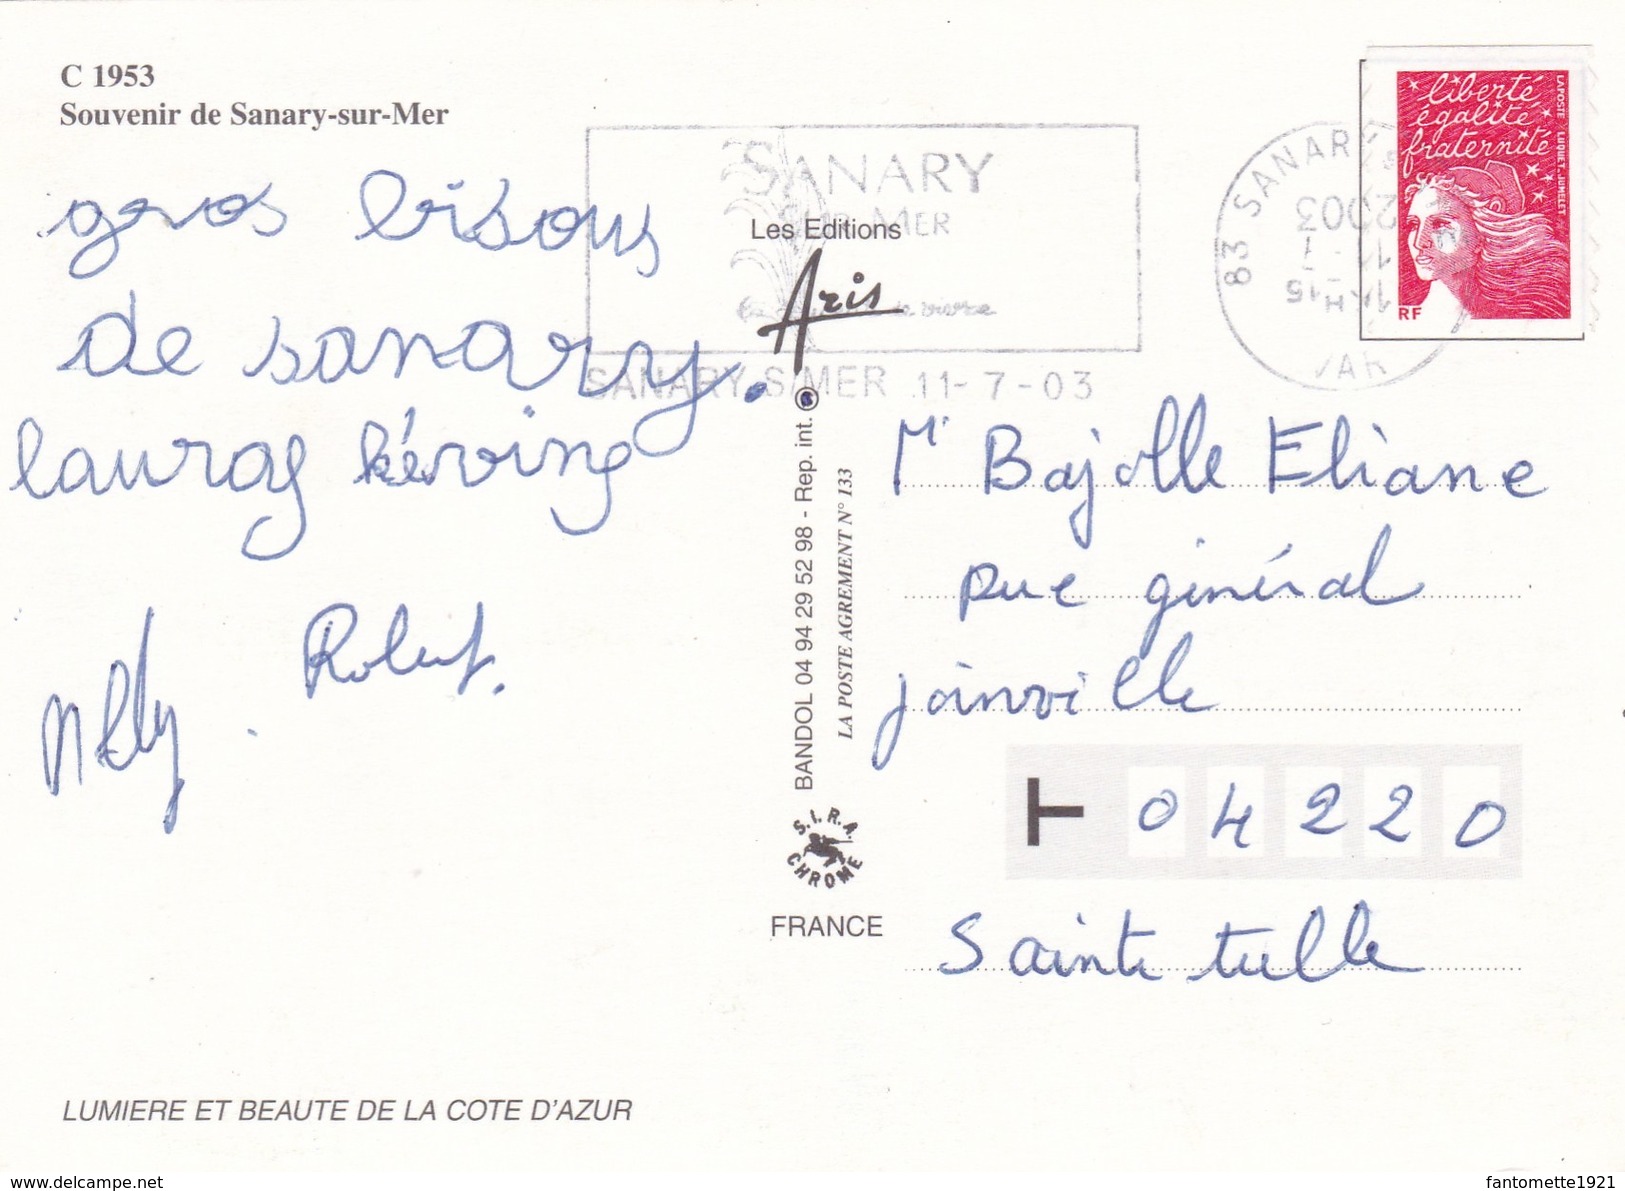 C 1953
Souvenir de Sanary-sur-Mer
gros bisous
de sanary.
lauraς kéving
Nelly. Robert.
SANARY
SUR MER
SANARY S/MER 11-7-03
83 SANARY
2003
VAR
liberté
égalité
fraternité
LAPOSTE LUQUET.JUMELET
RF
Les Editions
Aris
BANDOL 04 94 29 52 98 - Rep. int.
LA POSTE AGREMENT N° 133
S.I.R.A.
CHROME
FRANCE
Mr Bajolle Eliane
rue général
joinville
T 04220
Sainte tulle
LUMIERE ET BEAUTE DE LA COTE D'AZUR
www.delcampe.net
fantomette1921